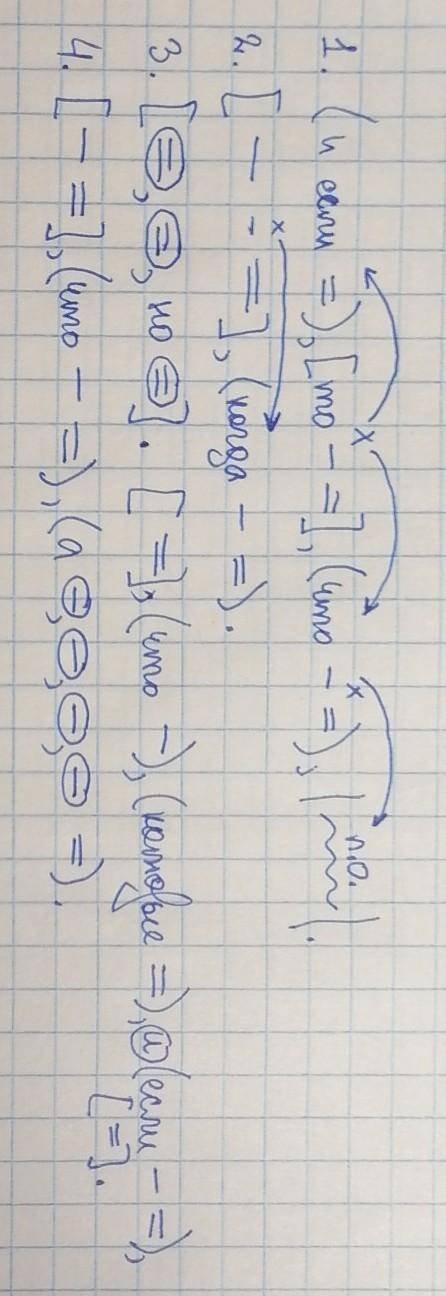 1. (и если =), [то – =], (что – =), |п.о.|.
2. [– - =], (когда – =).
3. [=, =, но =]. [=], (что –), (которые =), и (если – =),
[=].
4. [– =], (что – =), (а –, –, –, – =).